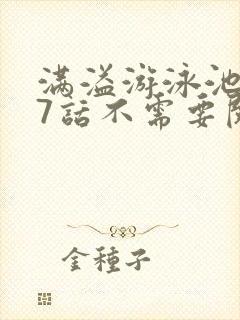 满溢游泳池
7話不需要
金種子